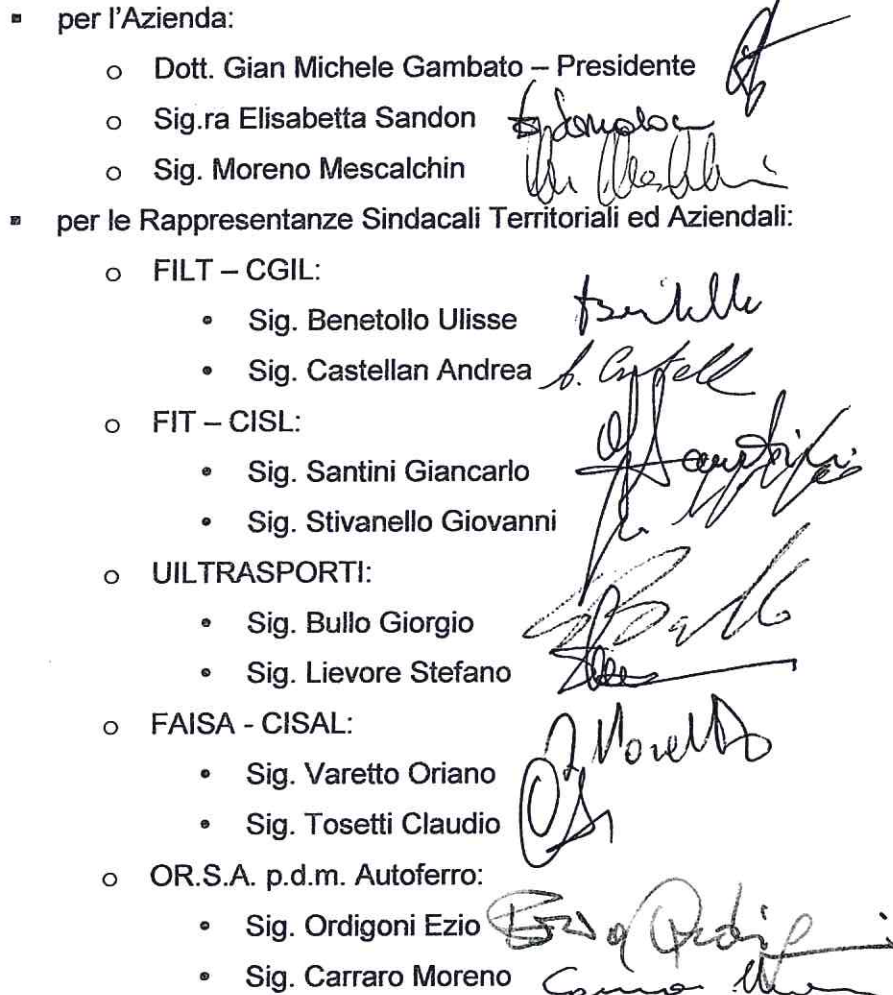 ▪ per l'Azienda:
o Dott. Gian Michele Gambato – Presidente
o Sig.ra Elisabetta Sandon
o Sig. Moreno Mescalchin
▪ per le Rappresentanze Sindacali Territoriali ed Aziendali:
o FILT – CGIL:
• Sig. Benetollo Ulisse
• Sig. Castellan Andrea
o FIT – CISL:
• Sig. Santini Giancarlo
• Sig. Stivanello Giovanni
o UILTRASPORTI:
• Sig. Bullo Giorgio
• Sig. Lievore Stefano
o FAISA - CISAL:
• Sig. Varetto Oriano
• Sig. Tosetti Claudio
o OR.S.A. p.d.m. Autoferro:
• Sig. Ordigoni Ezio
• Sig. Carraro Moreno